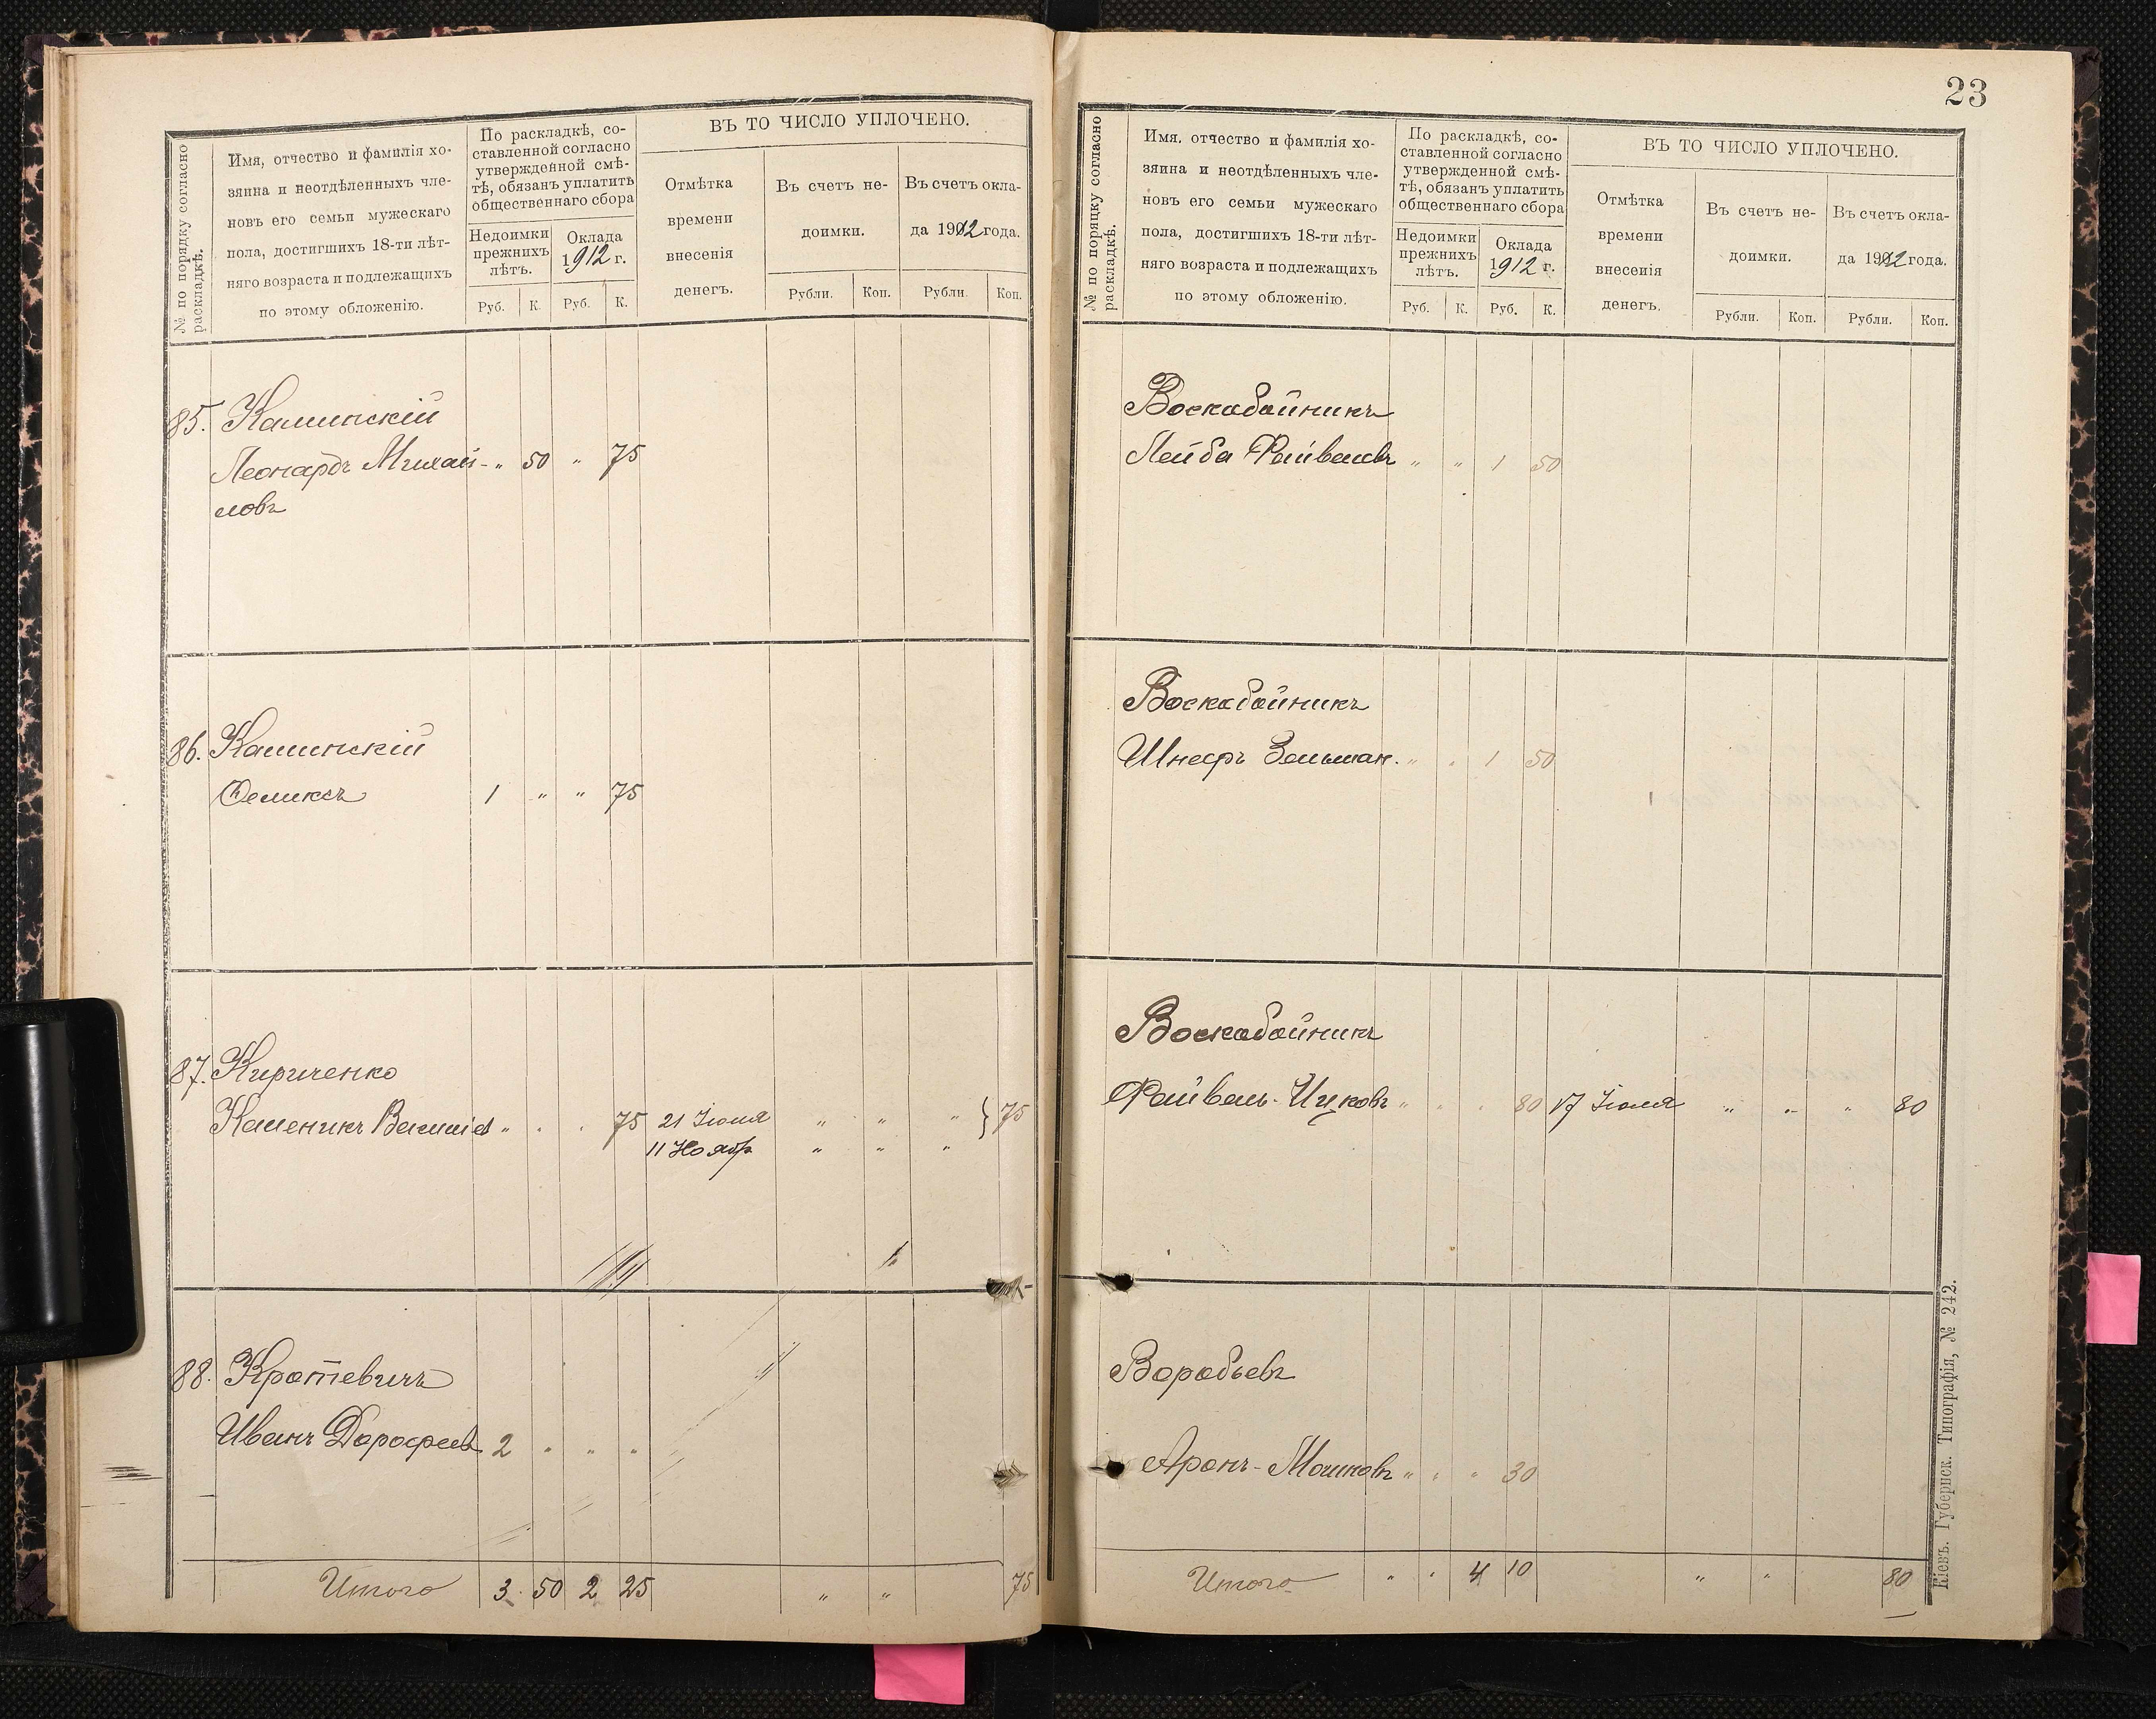 № по порядку согласно
раскладкѣ.
Имя, отчество и фамилія хо-
зяина и неотдѣленныхъ чле-
новъ его семьи мужескаго
пола, достигшихъ 18-ти лѣт-
няго возраста и подлежащихъ
по этому обложенію.
По раскладкѣ, со-
ставленной согласно
утвержденной смѣ-
тѣ, обязанъ уплатить
общественнаго сбора
Недоимки
прежнихъ
лѣтъ.
Оклада
1912 г.
Руб. К. Руб. К.
ВЪ ТО ЧИСЛО УПЛОЧЕНО.
Отмѣтка
времени
внесенія
денегъ.
Въ счетъ не-
доимки.
Въ счетъ окла-
да 1912 года.
Рубли. Коп. Рубли. Коп.
85. Каминскій
Леонардъ Михай- „ 50 „ 75
ловъ
86. Каминскій
Феликсъ 1 „ „ 75
87. Кириченко
Каленикъ Василіев „ „ „ 75 21 Іюля „ „ „ } 75
11 Ноября „ „ „
88. Кротевичъ
Иванъ Дорофеевъ 2 „ „ „
Итого 3 50 2 25 „ „ 75
23
№ по порядку согласно
раскладкѣ.
Имя, отчество и фамилія хо-
зяина и неотдѣленныхъ чле-
новъ его семьи мужескаго
пола, достигшихъ 18-ти лѣт-
няго возраста и подлежащихъ
по этому обложенію.
По раскладкѣ, со-
ставленной согласно
утвержденной смѣ-
тѣ, обязанъ уплатить
общественнаго сбора
Недоимки
прежнихъ
лѣтъ.
Оклада
1912 г.
Руб. К. Руб. К.
ВЪ ТО ЧИСЛО УПЛОЧЕНО.
Отмѣтка
времени
внесенія
денегъ.
Въ счетъ не-
доимки.
Въ счетъ окла-
да 1912 года.
Рубли. Коп. Рубли. Коп.
Воскабойникъ
Лейба Файвелевъ „ „ 1 50
Воскабойникъ
Шнеръ Зельман. „ „ 1 50
Воскабойникъ
Файвель-Ицковъ „ „ „ 80 17 Іюля „ „ „ 80
Воробьевъ
Аронъ-Мошковъ „ „ „ 30
Итого „ „ 4 10 „ „ 80
Кіевъ. Губернск. Типографія, № 242.